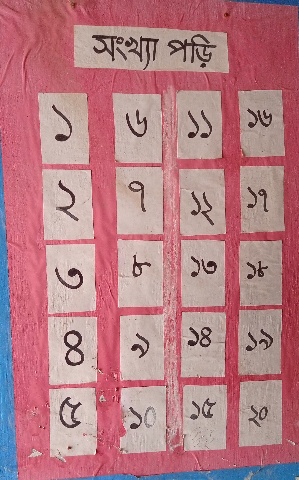 সংখ্যা পড়ি
১ ৬ ১১ ১৬
২ ৭ ১২ ১৭
৩ ৮ ১৩ ১৮
৪ ৯ ১৪ ১৯
৫ ১০ ১৫ ২০